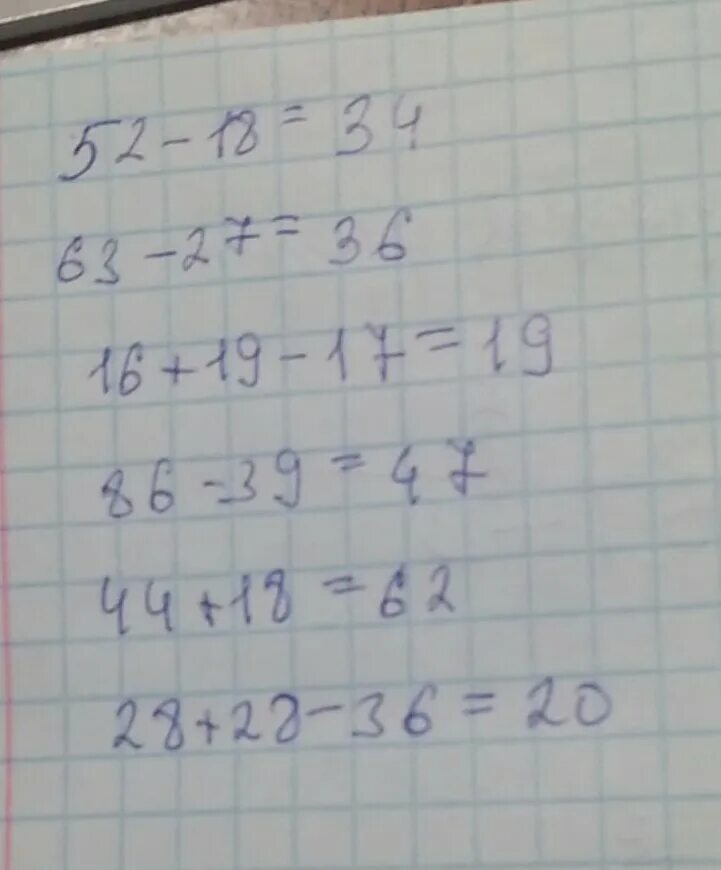 52-18=34
63-27=36
16+19-17=19
86-39=47
44+18=62
28+28-36=20